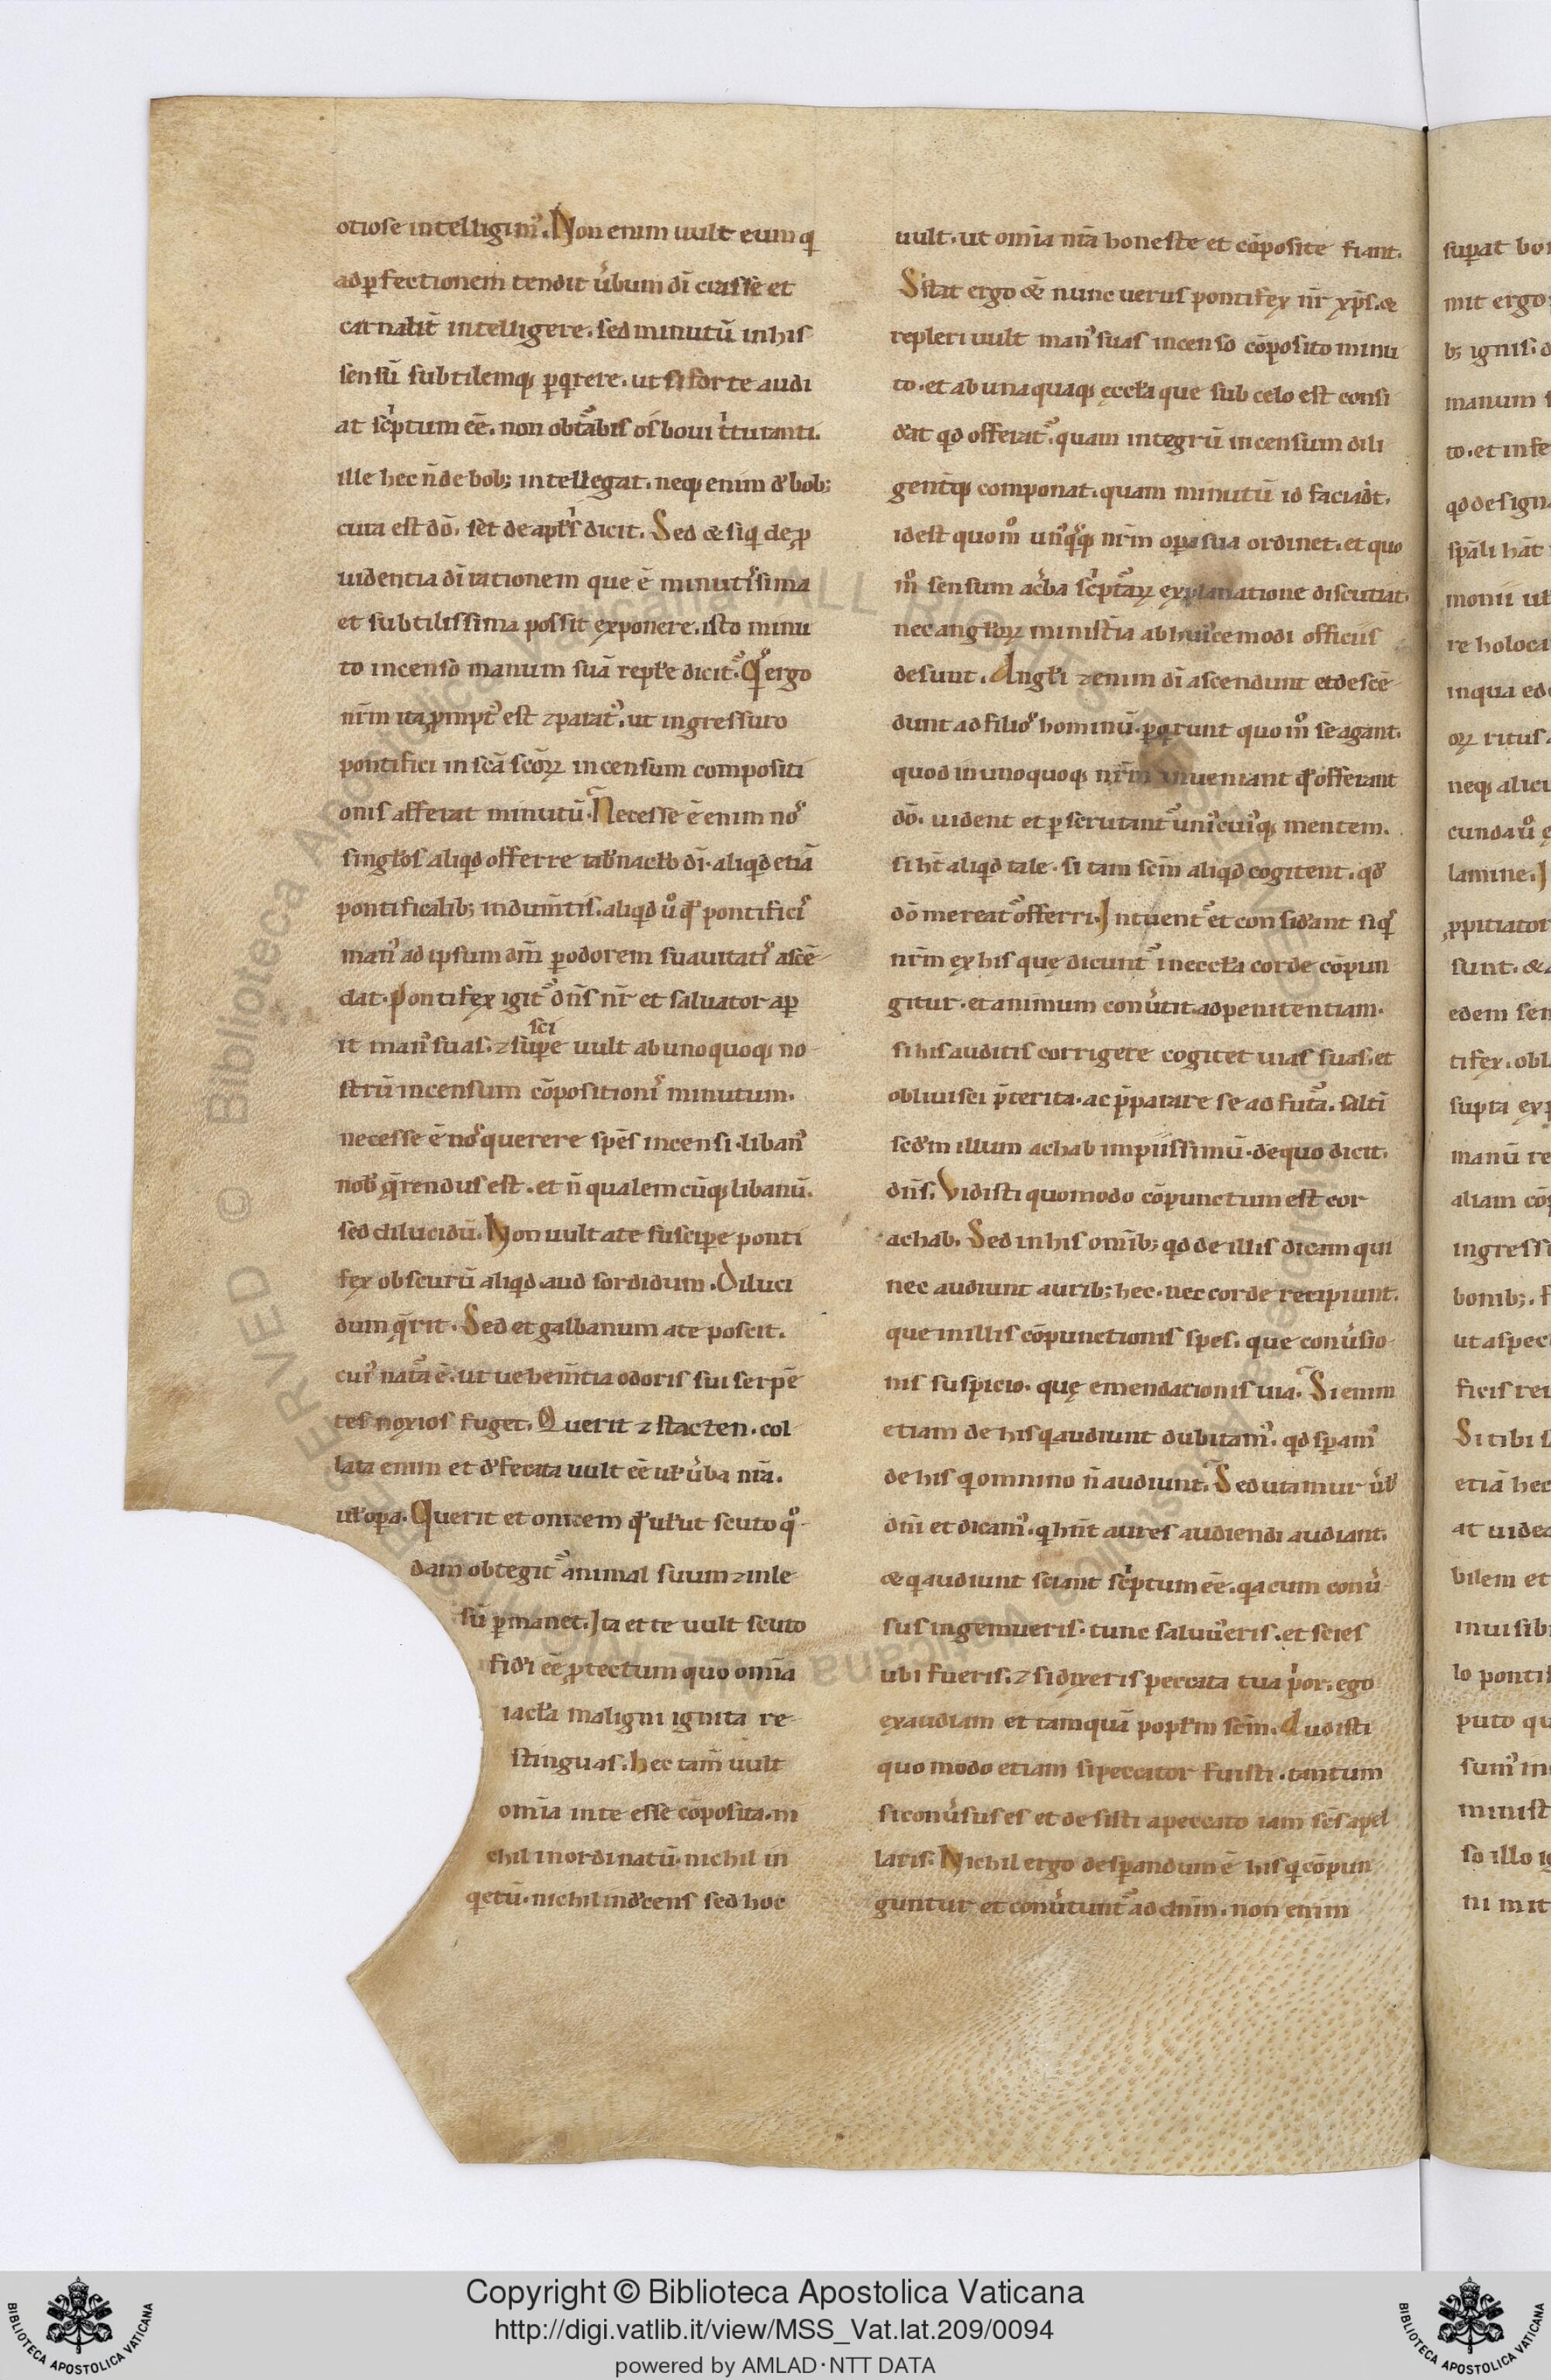 otiose intelligim᾽. Non enim uult eum q
adp̱fectionem tendit ủbum dī crasse et
carnalit̄ intelligere. sed minutū inhis
sensū subtilemq; ꝑqrere. ut si forte audi
at sc͛ptum cē. non obtᷓabis os boui t͛turanti.
ille hec n̄ de bob; intellegat. neq; enim d᾽ bob;
cura est dō. set de apl̓is dicit. Sed & siq de ꝓ
uidentia dī rationem que ē minutissima
et subtilissima possit exponere. isto minu
to incenso manum suā repl̓e dicit᷑. Qͥ ergo
nr̄m ita ꝓmpt᾽ est ⁊ parat᾽. ut ingressuro
pontifici in scā scōꝝ incensum compositi
onis afferat minutū. Necesse ē enim no᾽
singl̓os aliqd offerre tab᾽nacl̓o dī. aliqd etiā
pontificalib; indum̄tis. aliqd ủ qd᾽ pontifici᾽
man᾽ ad ipsum dm̄ ꝑ odorem suauitati᾽ ascē
dat. Pontifex igit᷑ dn̄s nr̄ et saluator aꝑ
it man᾽ suas. ⁊ suꝑe uult ab unoquoq; no
sci
strū incensum cōpositioni᾽ minutum.
necesse ē no᾽ querere spēs incensi. liban᾽
nob᾽ q̄rendus est. et n̄ qualemcūq; libanū.
sed dilucidū. Non uult a te susciꝑe ponti
fex obscurū aliqd. aud sordidum. Diluci
dum q̄rit. Sed et galbanum a te poscit.
cui᾽ natᷓa ē. ut uehem̄tia odoris sui serpē
tes noxios fuget. Querit ⁊ stacten. col
lata enim et d᾽fecata uult cē ul̓ ủba nr̄a.
ul̓ oꝑa. Querit et onicem qd᾽ ul̓ut scuto qͦ
dam obtegit᷑ animal suum ⁊ inle
sū ꝑmanet. Ita et te uult scuto
fid᾽i cē ꝓtectum quo omīa
iacl̓a maligni ignita re
stinguas. hec tam̄ uult
omīa in te esse cōposita. ni
chil inordinatū. nichil in
qetū. nichil ind᾽cens sed hoc
uult. ut omīa nr̄a honeste et cōposite fiant.
Stat ergo & nunc uerus pontifex nr̄ xp̄s. &
repleri uult man᾽ suas incenso cōposito minu
to. et ab unaquaq; ęccl̓a que sub celo est consi
d᾽at qd offerat᷑. quam integrū incensum dili
gent̄q; componat. quam minutū id faciat.
idest quom̊ un᾽qͥsq; nr̄m oꝑa sua ordinet. et quo
m̊ sensum ac ủba sc͛ptᷓaꝝ explanatione discutiat.
nec angl̓oꝝ minist̄ia ab huiꝰcemodi officiis
desunt. Angl̓i ⁊enim dī ascendunt et descē
dunt ad filio᾽ hominū. ꝑqrunt quom̊ se agant.
quod in unoquoq; nr̄m inueniant qd᾽ offerant
dō. uident et ꝑscrutant᷑ uni᾽cui᾽q; mentem.
si ht̄ aliqd tale. si tam scm̄ aliqd cogitent. qd᾽
dō mereat᷑ offerri. Intuent᷑ et consid᾽ant siqͥs
nr̄m ex his que dicunt᷑ in eccl̓a corde cōpun
gitur. et animum conủtit ad penitentiam.
si his auditis corrigere cogitet uias suas. et
obliuisci p̄terita. ac p̄parare se ad futᷓa. saltī
sed᾽m illum achab impiissimū. de quo dicit.
dn̄s. Vidisti quomodo cōpunctum est cor
achab. Sed in his omīb; qd de illis dicam qui
nec audiunt aurib; hec. nec corde recipiunt.
que in illis cōpunctionis spes. que conủsio
nis suspicio. quę emendationis uia. Si enim
etiam de his q audiunt dubitam᾽. qd sꝑam᾽
de his q omnino n̄ audiunt. Sed utamur ủb᾽
dnī et dicam᾽. q hn̄t aures audiendi audiant.
& q audiunt sciant sc͛ptum cē. qa cum conủ
sus ingemueris. tunc saluu᾽ eris. et scies
ubi fueris. ⁊ si dixeris peccata tua p͛or. ego
exaudiam et tamquā popl̓m scm̄. Audisti
quo modo etiam si peccator fuisti. tantum
si conủsus es et desisti a peccato iam scs̄ apel
laris. Nichil ergo desꝑandum ē his q cōpun
guntur et conủtunt᷑ ad dnm̄. non enim
suꝑat bo
mit ergo
b; ignis. d
manum
to. et inse
qd design
spāli hāt
monii ul̓
re holoca
in qua ed
oꝝ ritus
neq; alicu
cunda ủ ę
lamine. I
ꝓpitiator
sunt. &
edem sen
tifex. obl
supta exp
manū re
aliam cōp
ingress
bonib;. f
ut aspec
ficis rei
Si tibi s
etiā hec
at uidea
bilem et
inuisib
lo pontif
puto qu
sum᾽ in
minist
so illo ig
ni mit
Copyright © Biblioteca Apostolica Vaticana
http://digi.vatlib.it/view/MSS_Vat.lat.209/0094
powered by AMLAD·NTT DATA
BIBLIOTECA APOSTOLICA VATICANA
BIBLIOTECA APOSTOLICA VATICANA